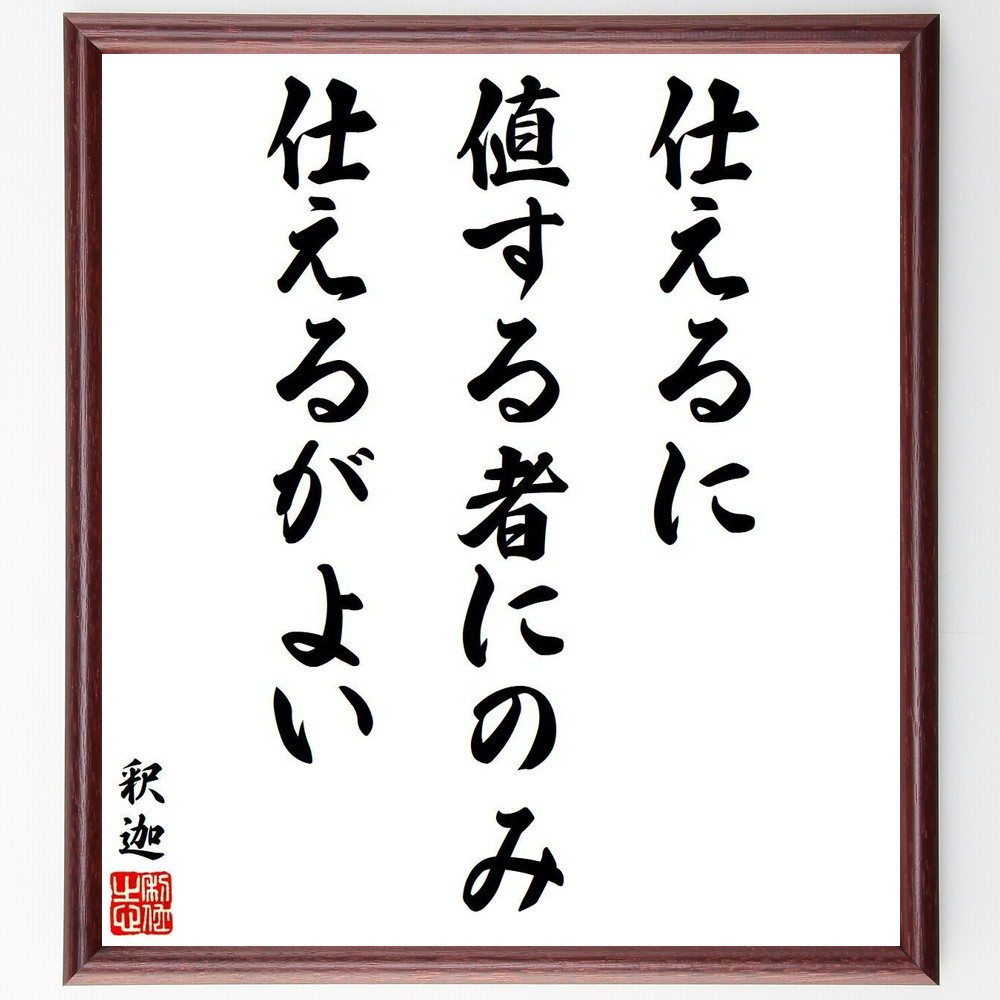 仕えるに
値する者にのみ
仕えるがよい
釈迦